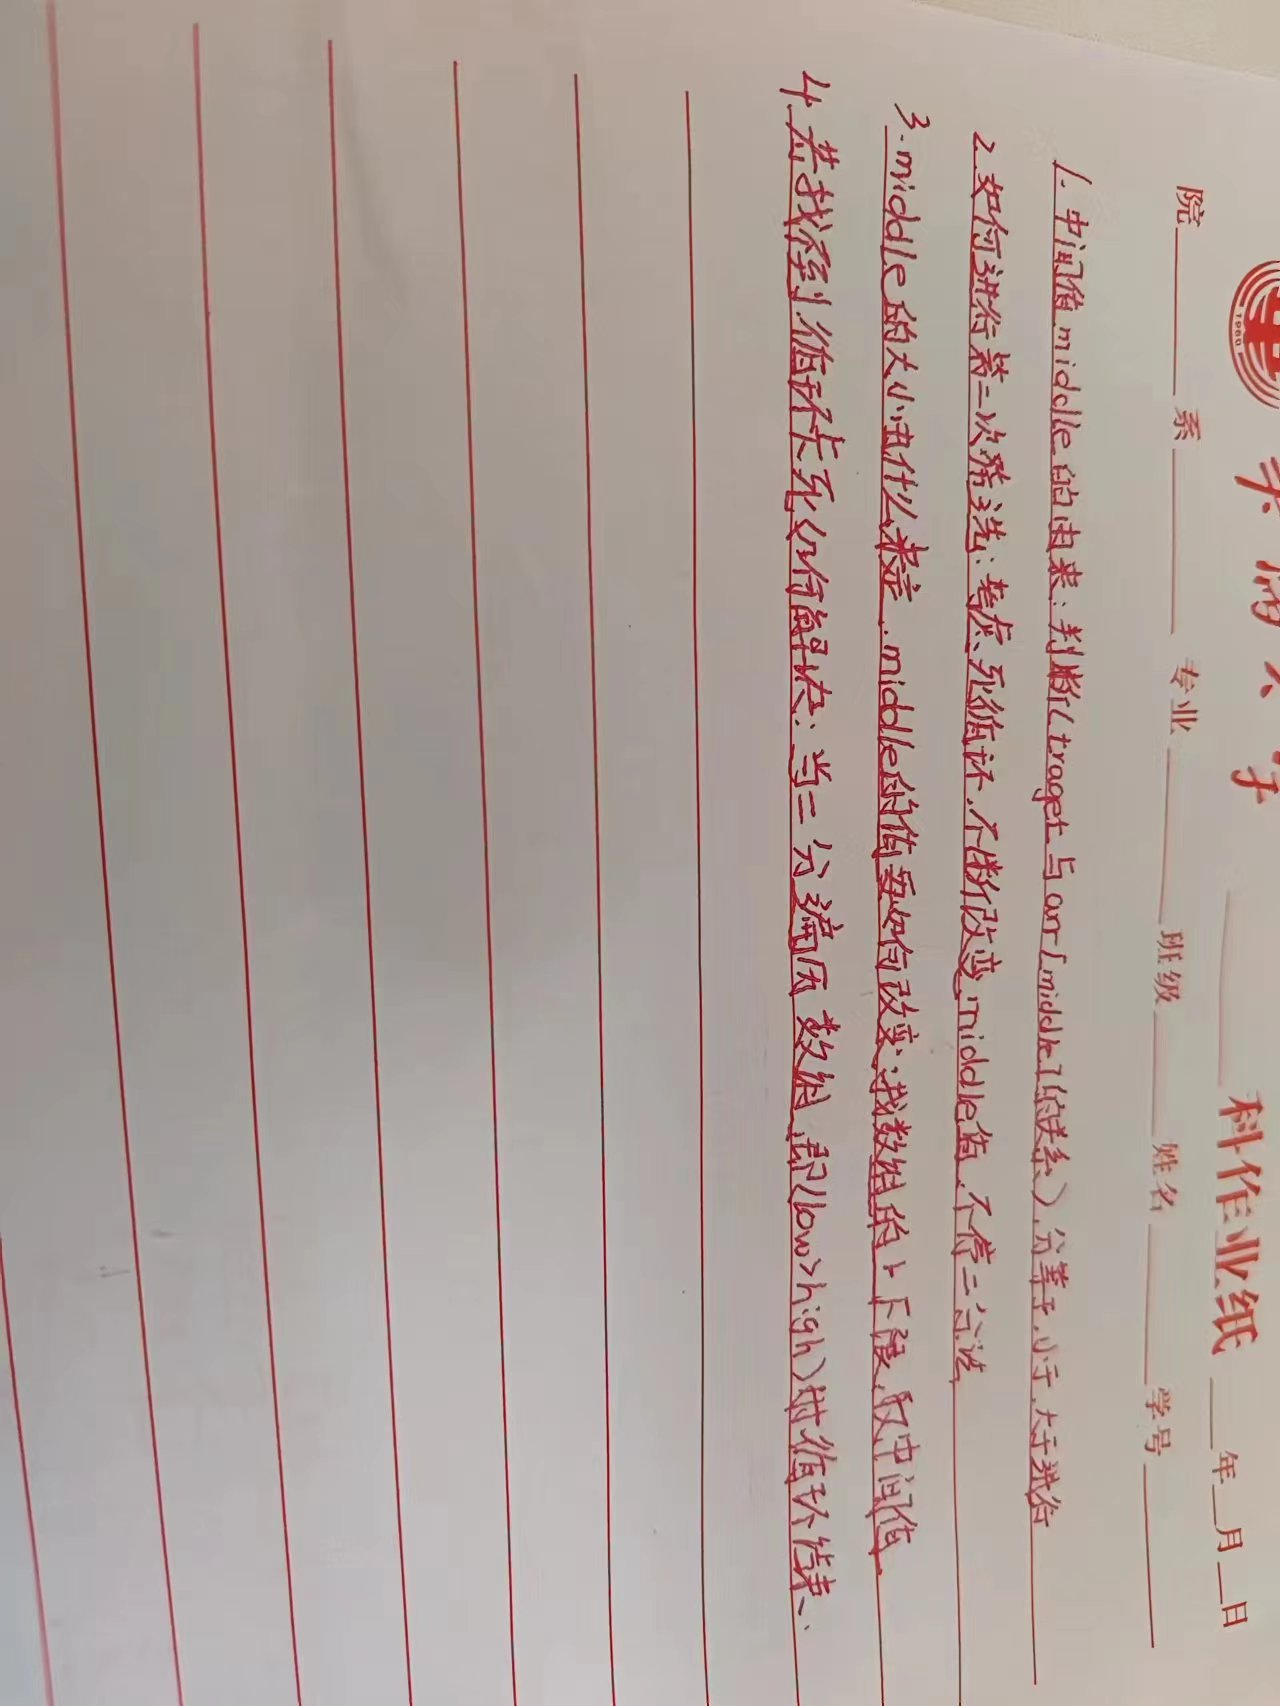 科作业纸 年 月 日
1960
院 系 专业 班级 姓名 学号
1.中间值middle的由来：判断(traget与arr[middle]的关系)，分等于，小于，大于进行
2.如何进行第二次筛选：考虑死循环，不断改变middle值，不停二分法
3.middle的大小由什么来定，middle的值要如何改变：找数组的上下限，取中间值
4.若找不到，循环卡死如何解决：当二分遍历数组，即(low>high)时循环结束、